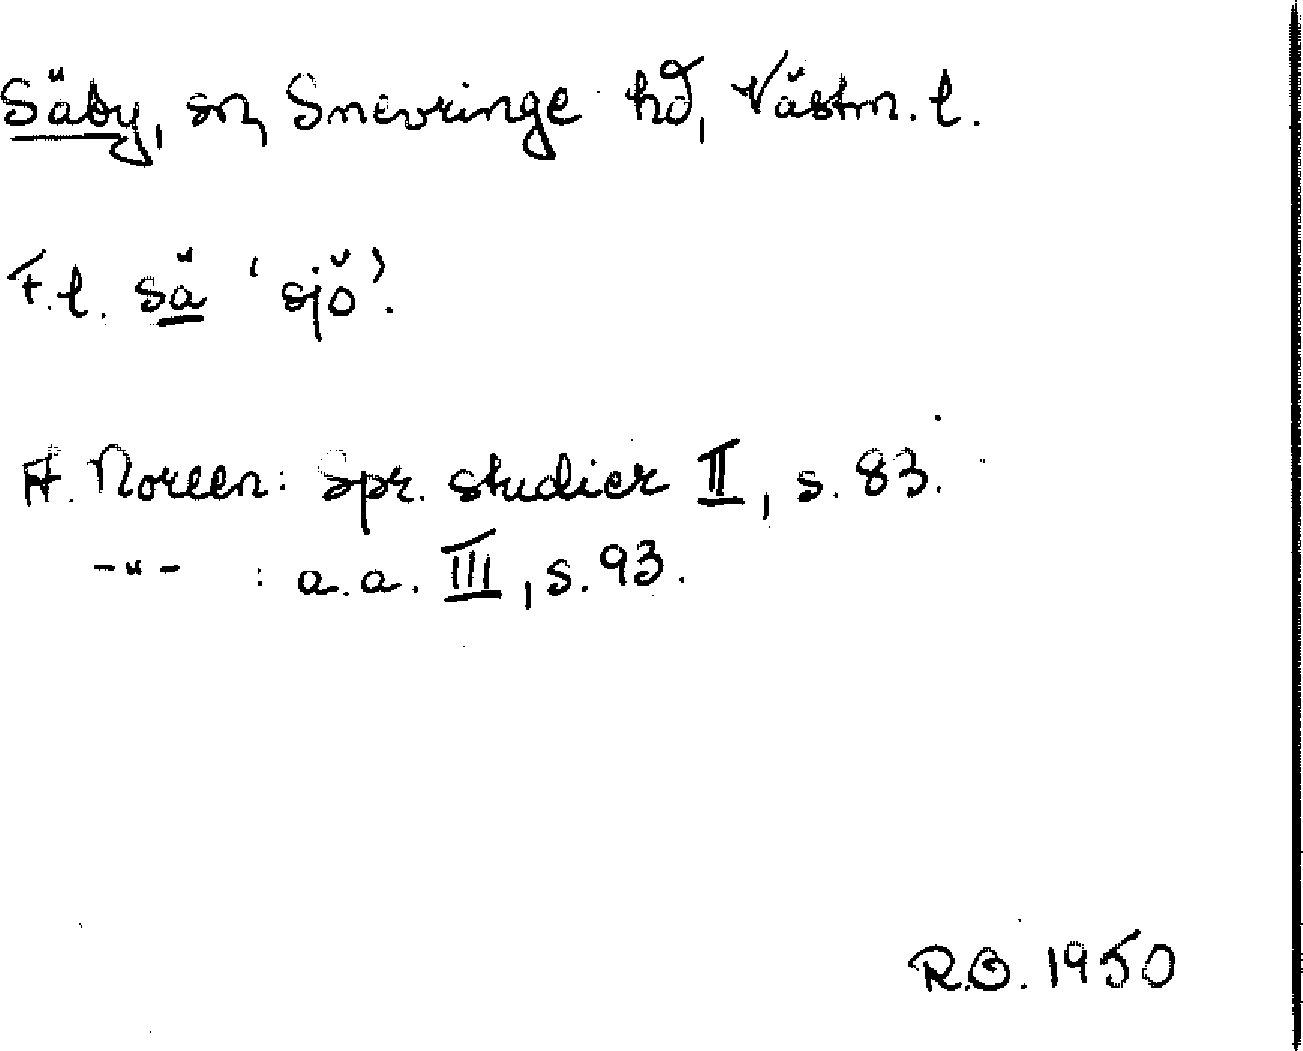 Säby, sn, Snevringe hd, Västm. l.
F.l. sä 'sjö'.
A. Noreen: Spr. studier II, s. 83.
-"- : a.a. III, s. 93.
R.O. 1950